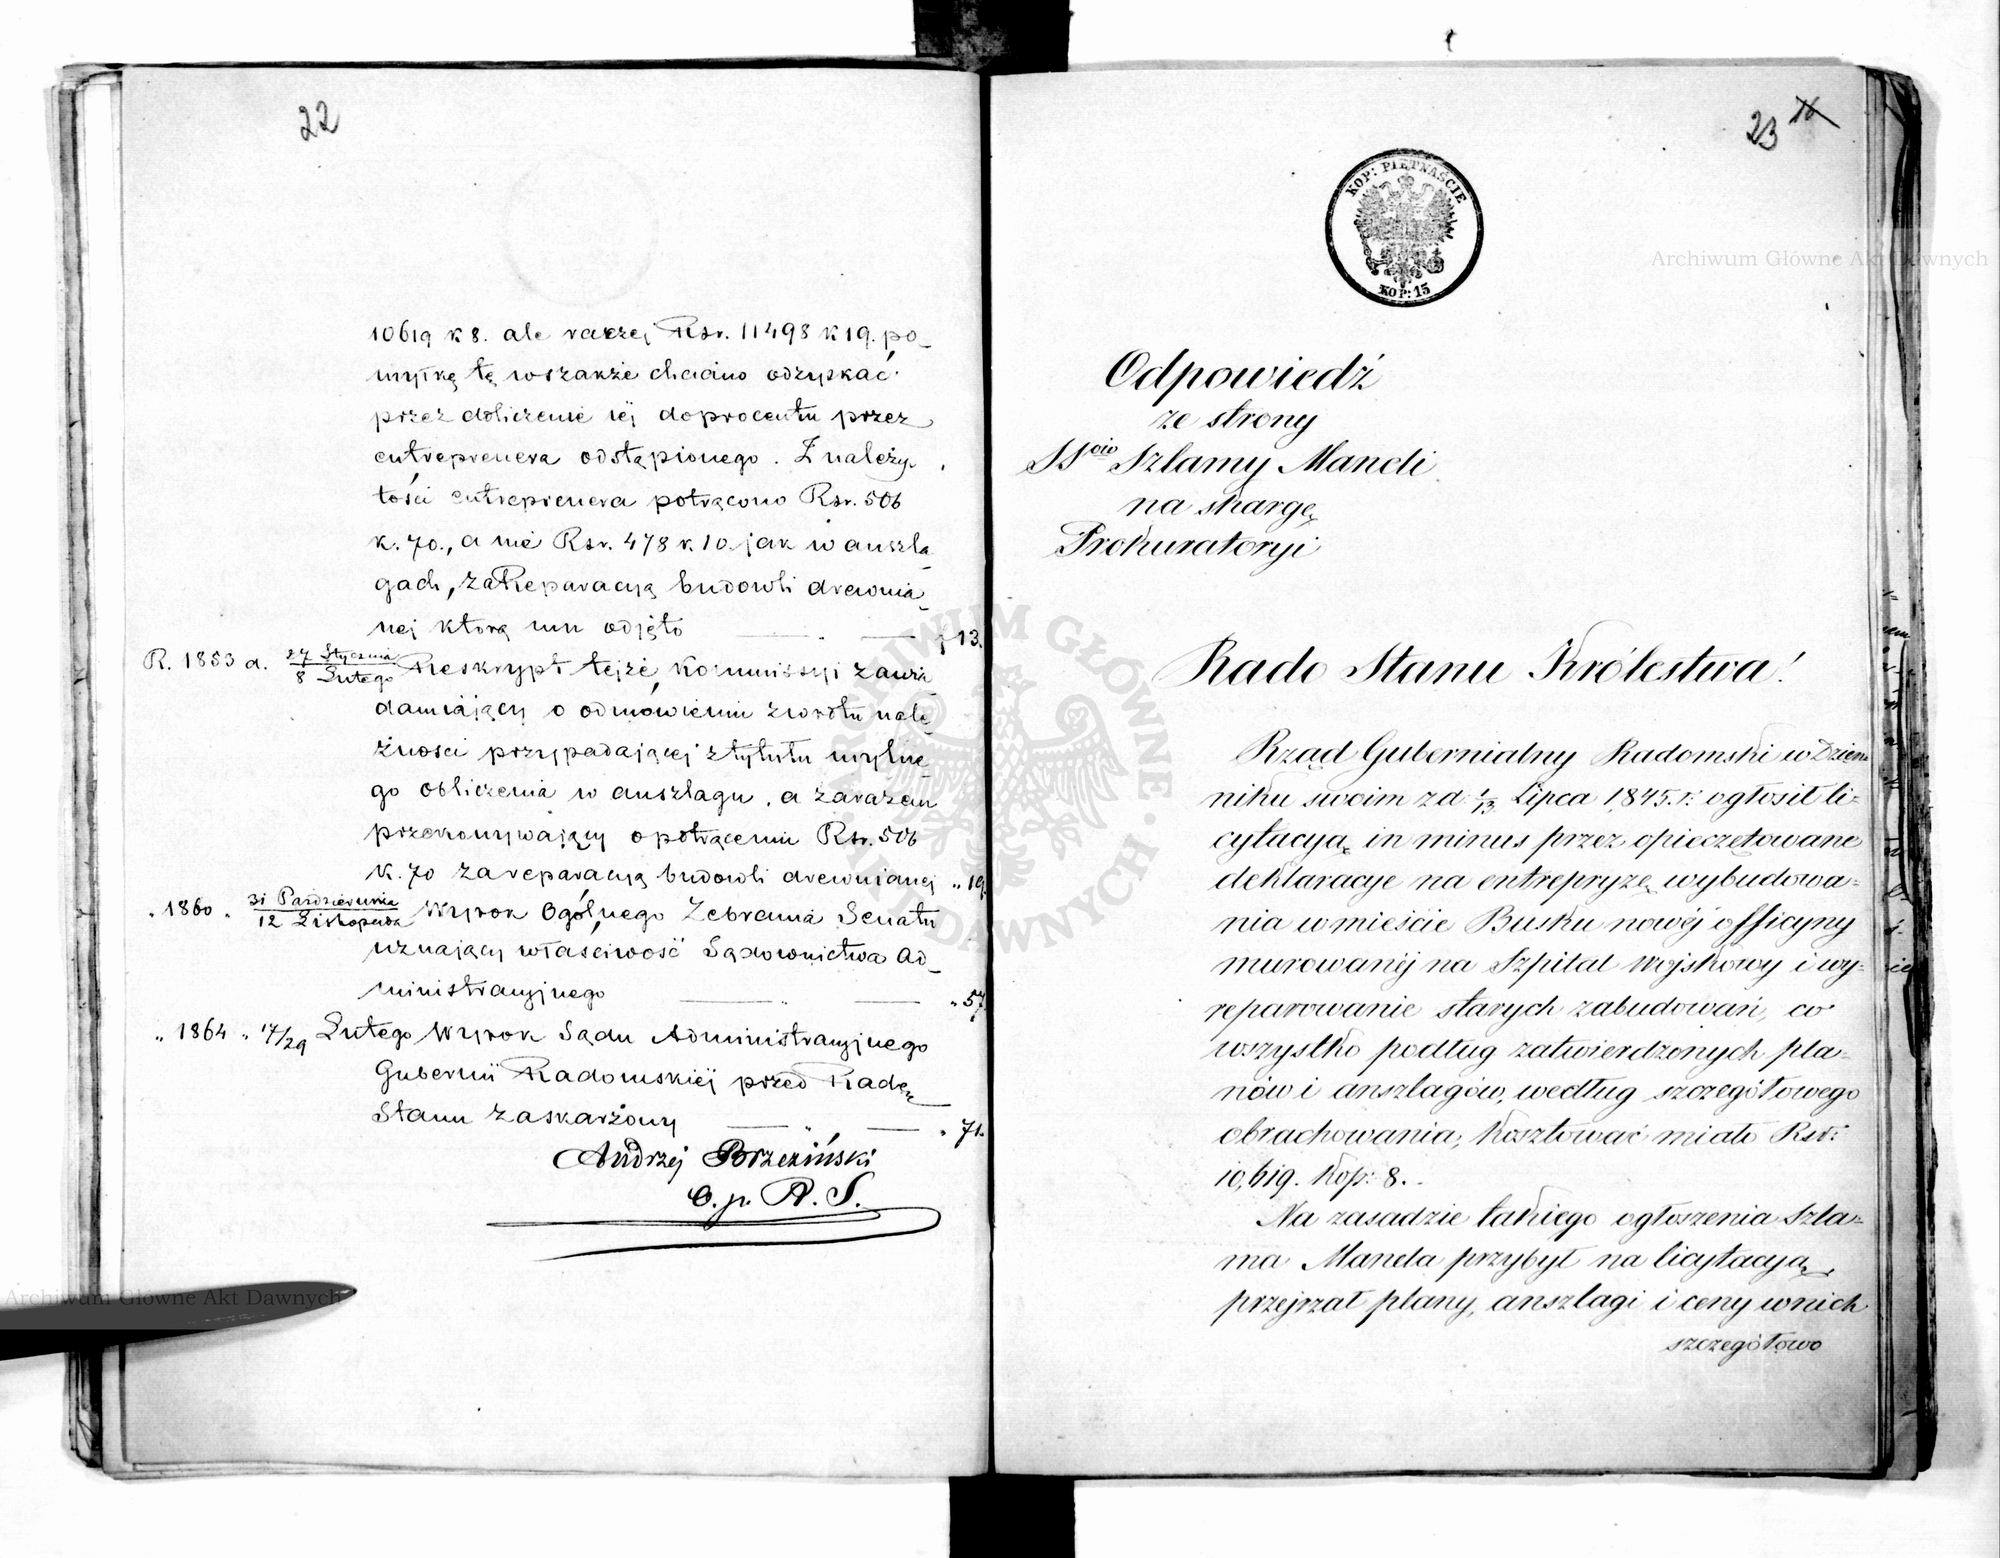 22
10619 k 8. ale raczej Rsr. 11498 k 19. po-
myłkę tę wszakże chciano odzyskać
przez doliczenie jéj do procentu przez
entreprenera odstąpionego. Z należy-
tości entreprenera potrącono Rsr. 506
k. 70., a nie Rsr. 478 k. 10. jak w anszla-
gach, za Reparacyą budowli drewnia-
nej którą mu odjęto f 13.
R. 1853 d. 27 Stycznia / 8 Lutego Reskrypt tejże Kommissyi zawia-
damiający o odmówieniu zwrotu nale-
żności przypadającej z tytułu mylne-
go obliczenia w anszlagu, a zarazem
przekonywający o potrąceniu Rsr. 506
k. 70 za reparacyą budowli drewnianej „ 19.
„ 1860 „ 31 Października / 12 Listopada Wyrok Ogólnego Zebrania Senatu
uznający właściwość Sądownictwa Ad-
ministracyjnego „ 57.
„ 1864 „ 17/29 Lutego Wyrok Sądu Administracyjnego
Gubernii Radomskiéj przed Radę
Stanu zaskarżony „ 71.
Andrzej Brzeziński
O. p. R. S.
23
KOP: PIĘTNAŚCIE
KOP: 15
Odpowiedź
ze strony
SSów Szlamy Maneli
na skargę
Prokuratoryi
Rado Stanu Królestwa!
Rząd Gubernialny Radomski w Dzien-
niku swoim z d. 1/13 Lipca 1845. r: ogłosił li-
cytacyą in minus przez opieczętowane
deklaracye na entrepryzę wybudowa-
nia w mieście Busku nowéj officyny
murowanéj na Szpital Wojskowy i wy-
reparowanie starych zabudowań, co
wszystko podług zatwierdzonych pla-
nów i anszlagów, według szczegółowego
obrachowania, kosztować miało Rsr:
10,619. Kop: 8.
Na zasadzie takiego ogłoszenia Szla-
ma Manela przybył na licytacyą,
przejrzał plany, anszlagi i ceny w nich
szczegółowo
Archiwum Główne Akt Dawnych
Archiwum Główne Akt Dawnych
ARCHIWUM GŁÓWNE AKT DAWNYCH